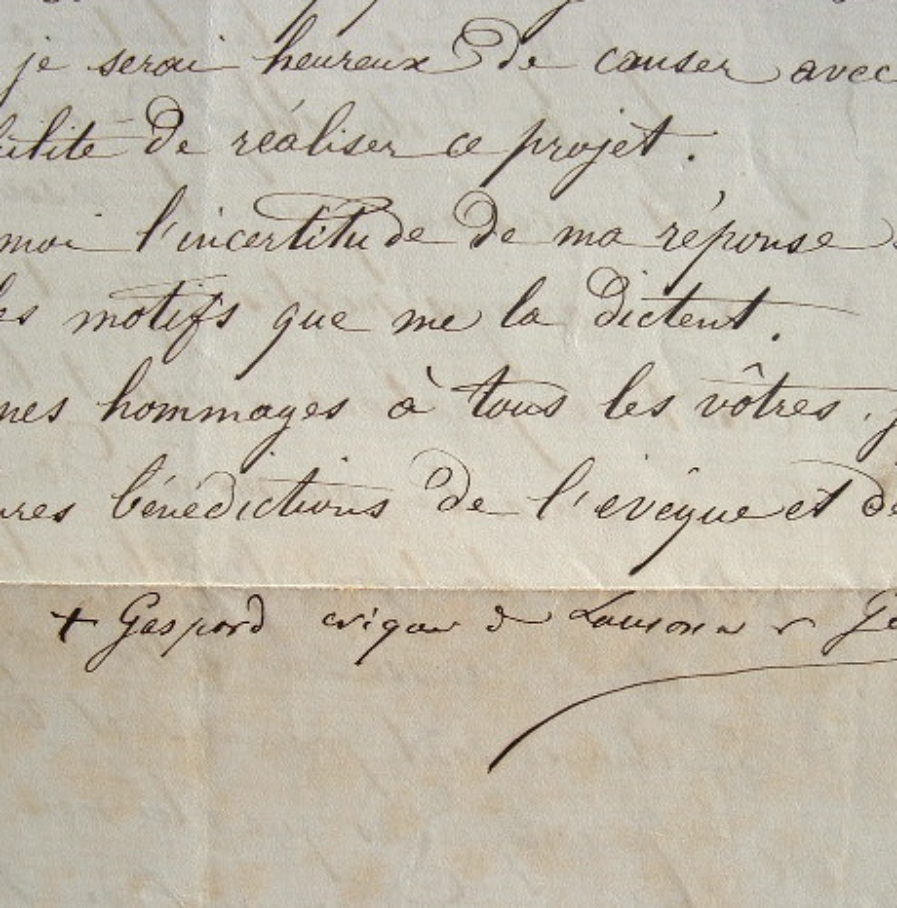 je serai heureux de causer avec
ilité de réaliser ce projet.
moi l'incertitude de ma réponse
motifs que me la dictent.
mes hommages à tous les vôtres,
bénédictions de l'evêque et de
+ Gaspard evêque de Lausanne et Ge